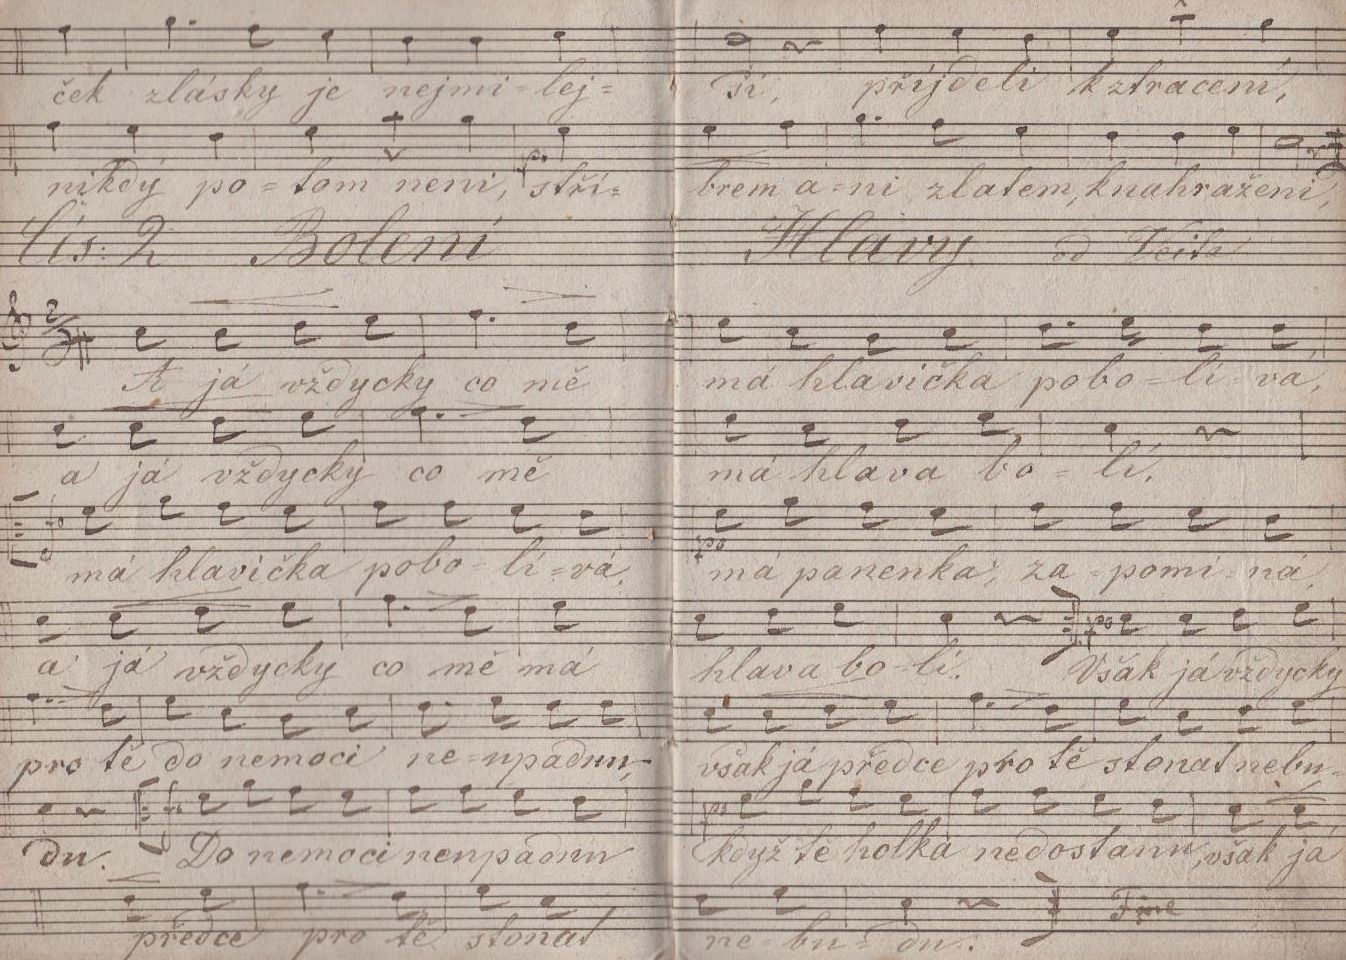 ček zlásky je nejmi-lej- ší, přijdeli k ztracení,
nikdý po-tom neni, stří- brem a-ni zlatem, k nahraženi,
Čís: 2 Boleni Hlavy od Veita
A já vždycky co mě má hlavička pobo-lí-vá,
a já vždycky co mě má hlava bo-lí.
má hlavička pobo-li-vá, má panenka, za-pomí-ná,
a já vždycky co mě má hlava bo-lí. Však já vždycky
pro tě do nemoci ne-upadnu, však já předce pro tě stonat nebu-
du. Do nemoci neupadnu když tě holka nedostanu, však já
předce pro tě stonat ne-bu-du.
Fine